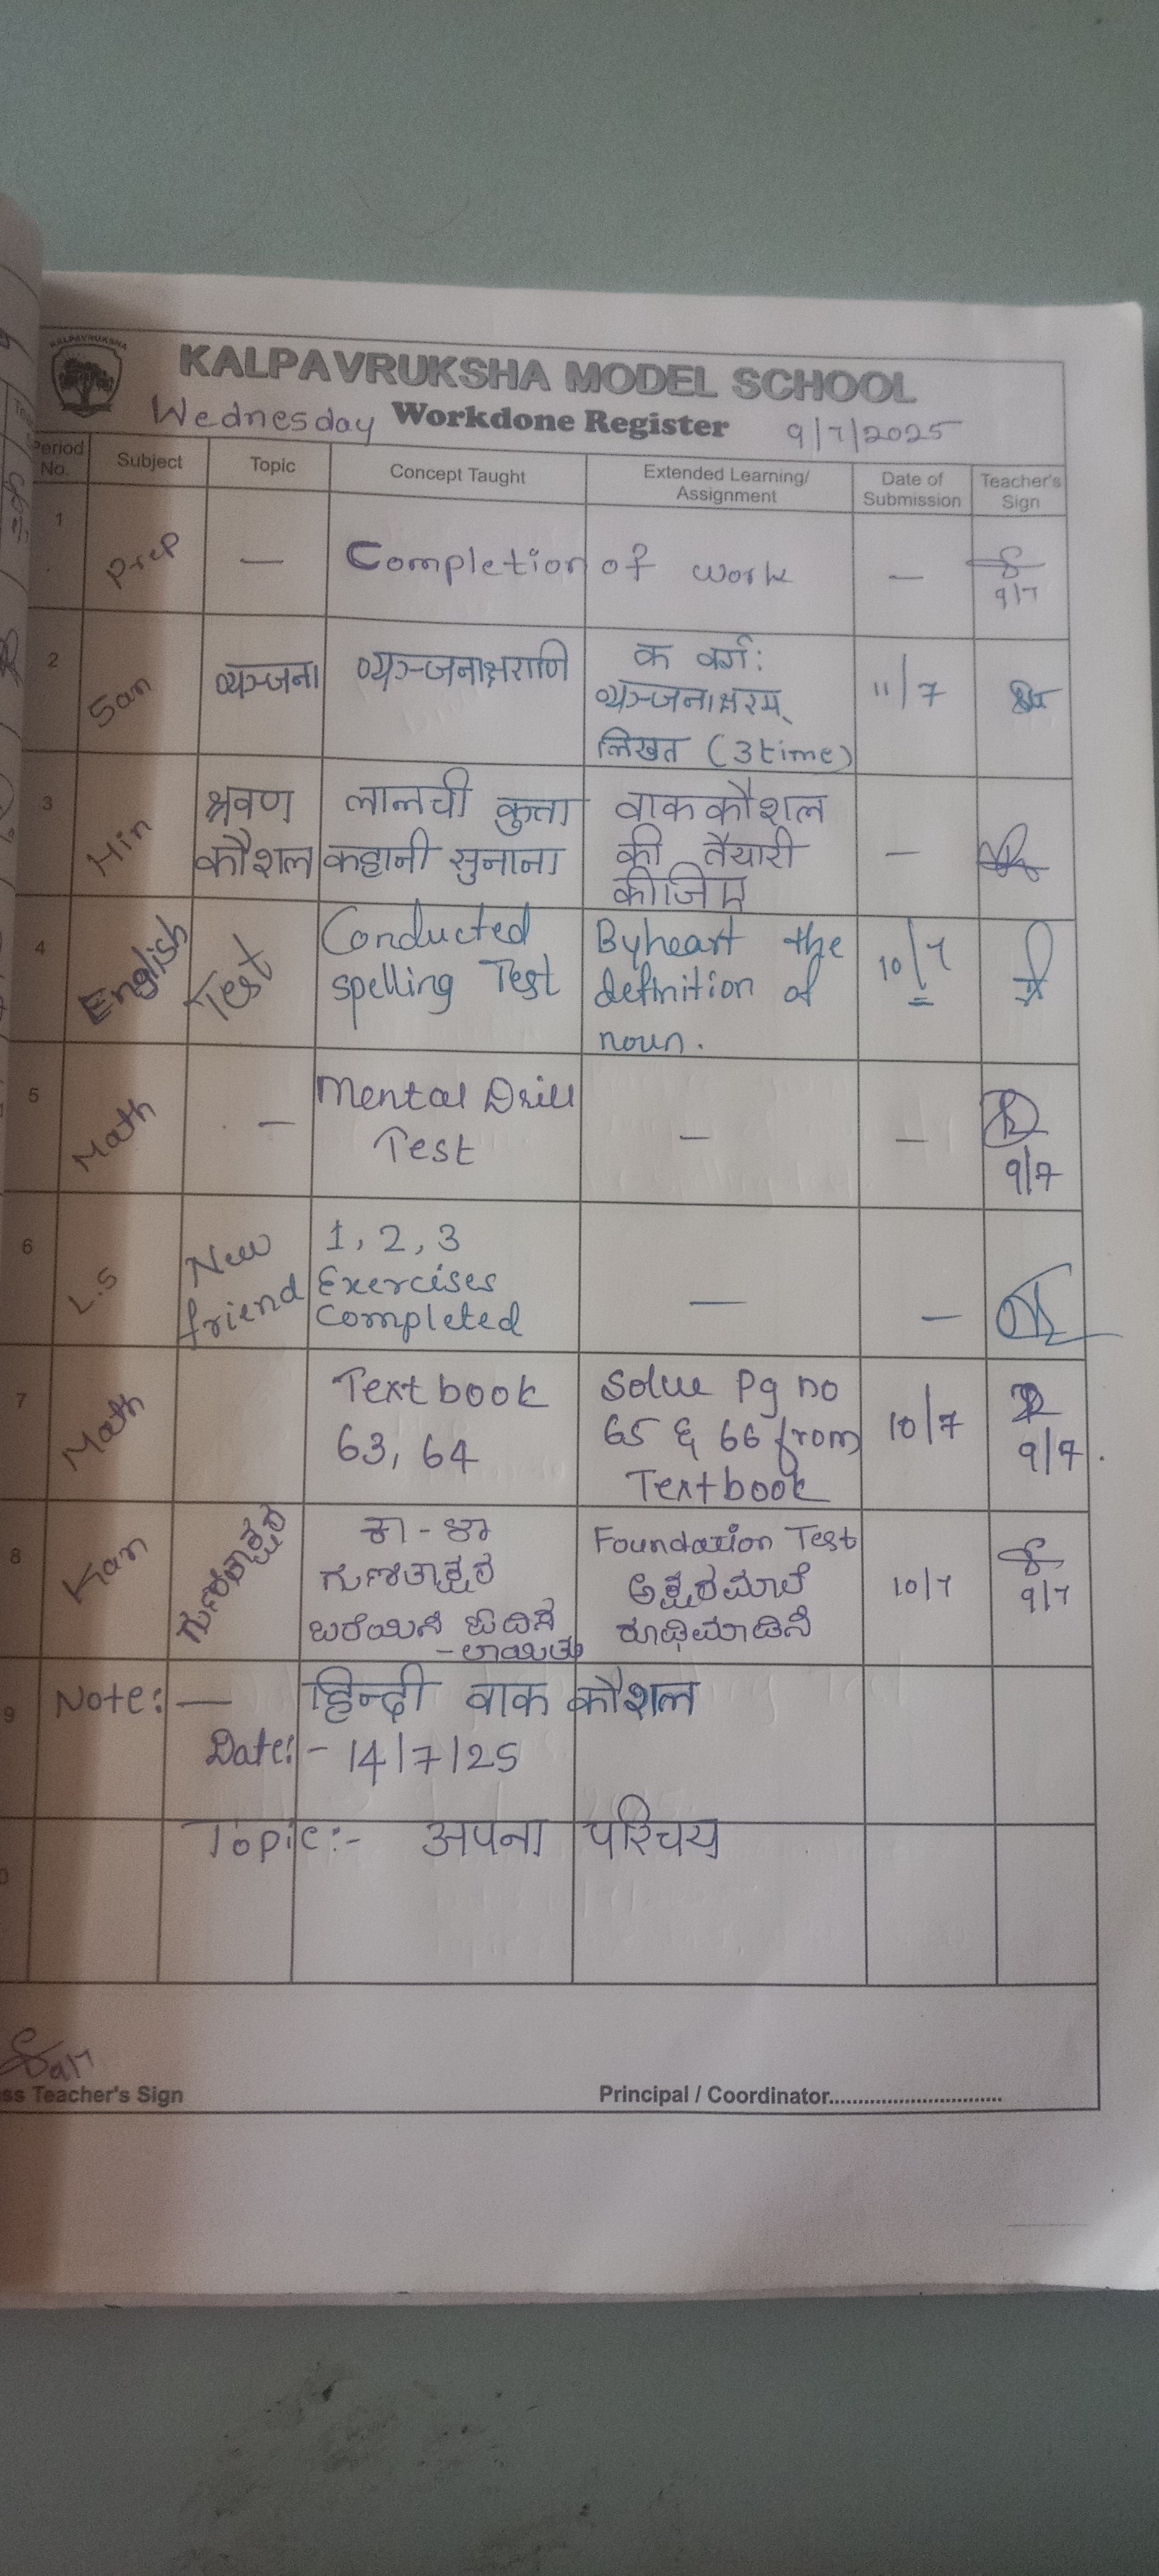 KALPAVRUKSHA
KALPAVRUKSHA MODEL SCHOOL
Wednesday Workdone Register 9/7/2025
Period No. Subject Topic Concept Taught Extended Learning/ Assignment Date of Submission Teacher's Sign
1 Prep — Completion of work — 9/7
2 San व्यञ्जना व्यञ्जनाक्षराणि क वर्ग: 11/7
व्यञ्जनाक्षरम्
लिखत (3 time)
3 Hin श्रवण लालची कुत्ता वाक कौशल
कौशल कहानी सुनाना की तैयारी —
कीजिए
4 English Test Conducted Byheart the 10/7
spelling Test definition of
noun.
5 Math — Mental Drill — —
Test 9/7
6 L.S New 1, 2, 3
friend Exercises — —
Completed
7 Math Textbook Solve Pg no 10/7
63, 64 65 & 66 from 9/7
Textbook
8 Kan ಗುಣಿತಾಕ್ಷರ ಕಾ - ಳಾ Foundation Test 10/7
ಗುಣಿತಾಕ್ಷರ ಅಕ್ಷರಮಾಲೆ 9/7
ಬರೆಯಿಸಿ ಓದಿಸ ರೂಢಿಮಾಡಿಸಿ
-ಲಾಯಿತು
9 Note:- हिन्दी वाक कौशल
Date:- 14/7/25
Topic:- अपना परिचय
ss Teacher's Sign Principal / Coordinator..............................